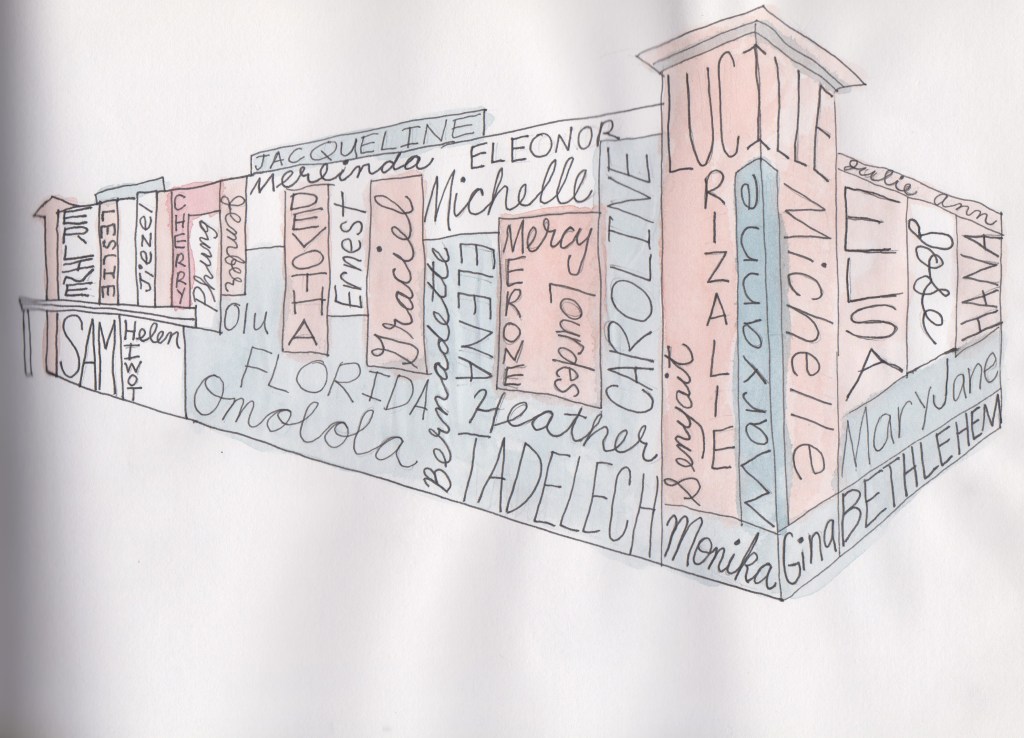 JACQUELINE
Merlinda
ELEONOR
Michelle
LUCILLE
LESLIE
Jieze
CHERRY
Phung
DEVOTHA
Ernest
Graciel
Bernadette
ELENA
Mercy
MERONE
Lourdes
CAROLINE
RIZALIE
Senyait
Maryanne
Michelle
Julie ann
ELISA
Jose
HANA
SAM
Helen
TIWOT
Olu
FLORIDA
Omolola
Heather
TADELECH
Monika
Gina
MaryJane
BETHLEHEM